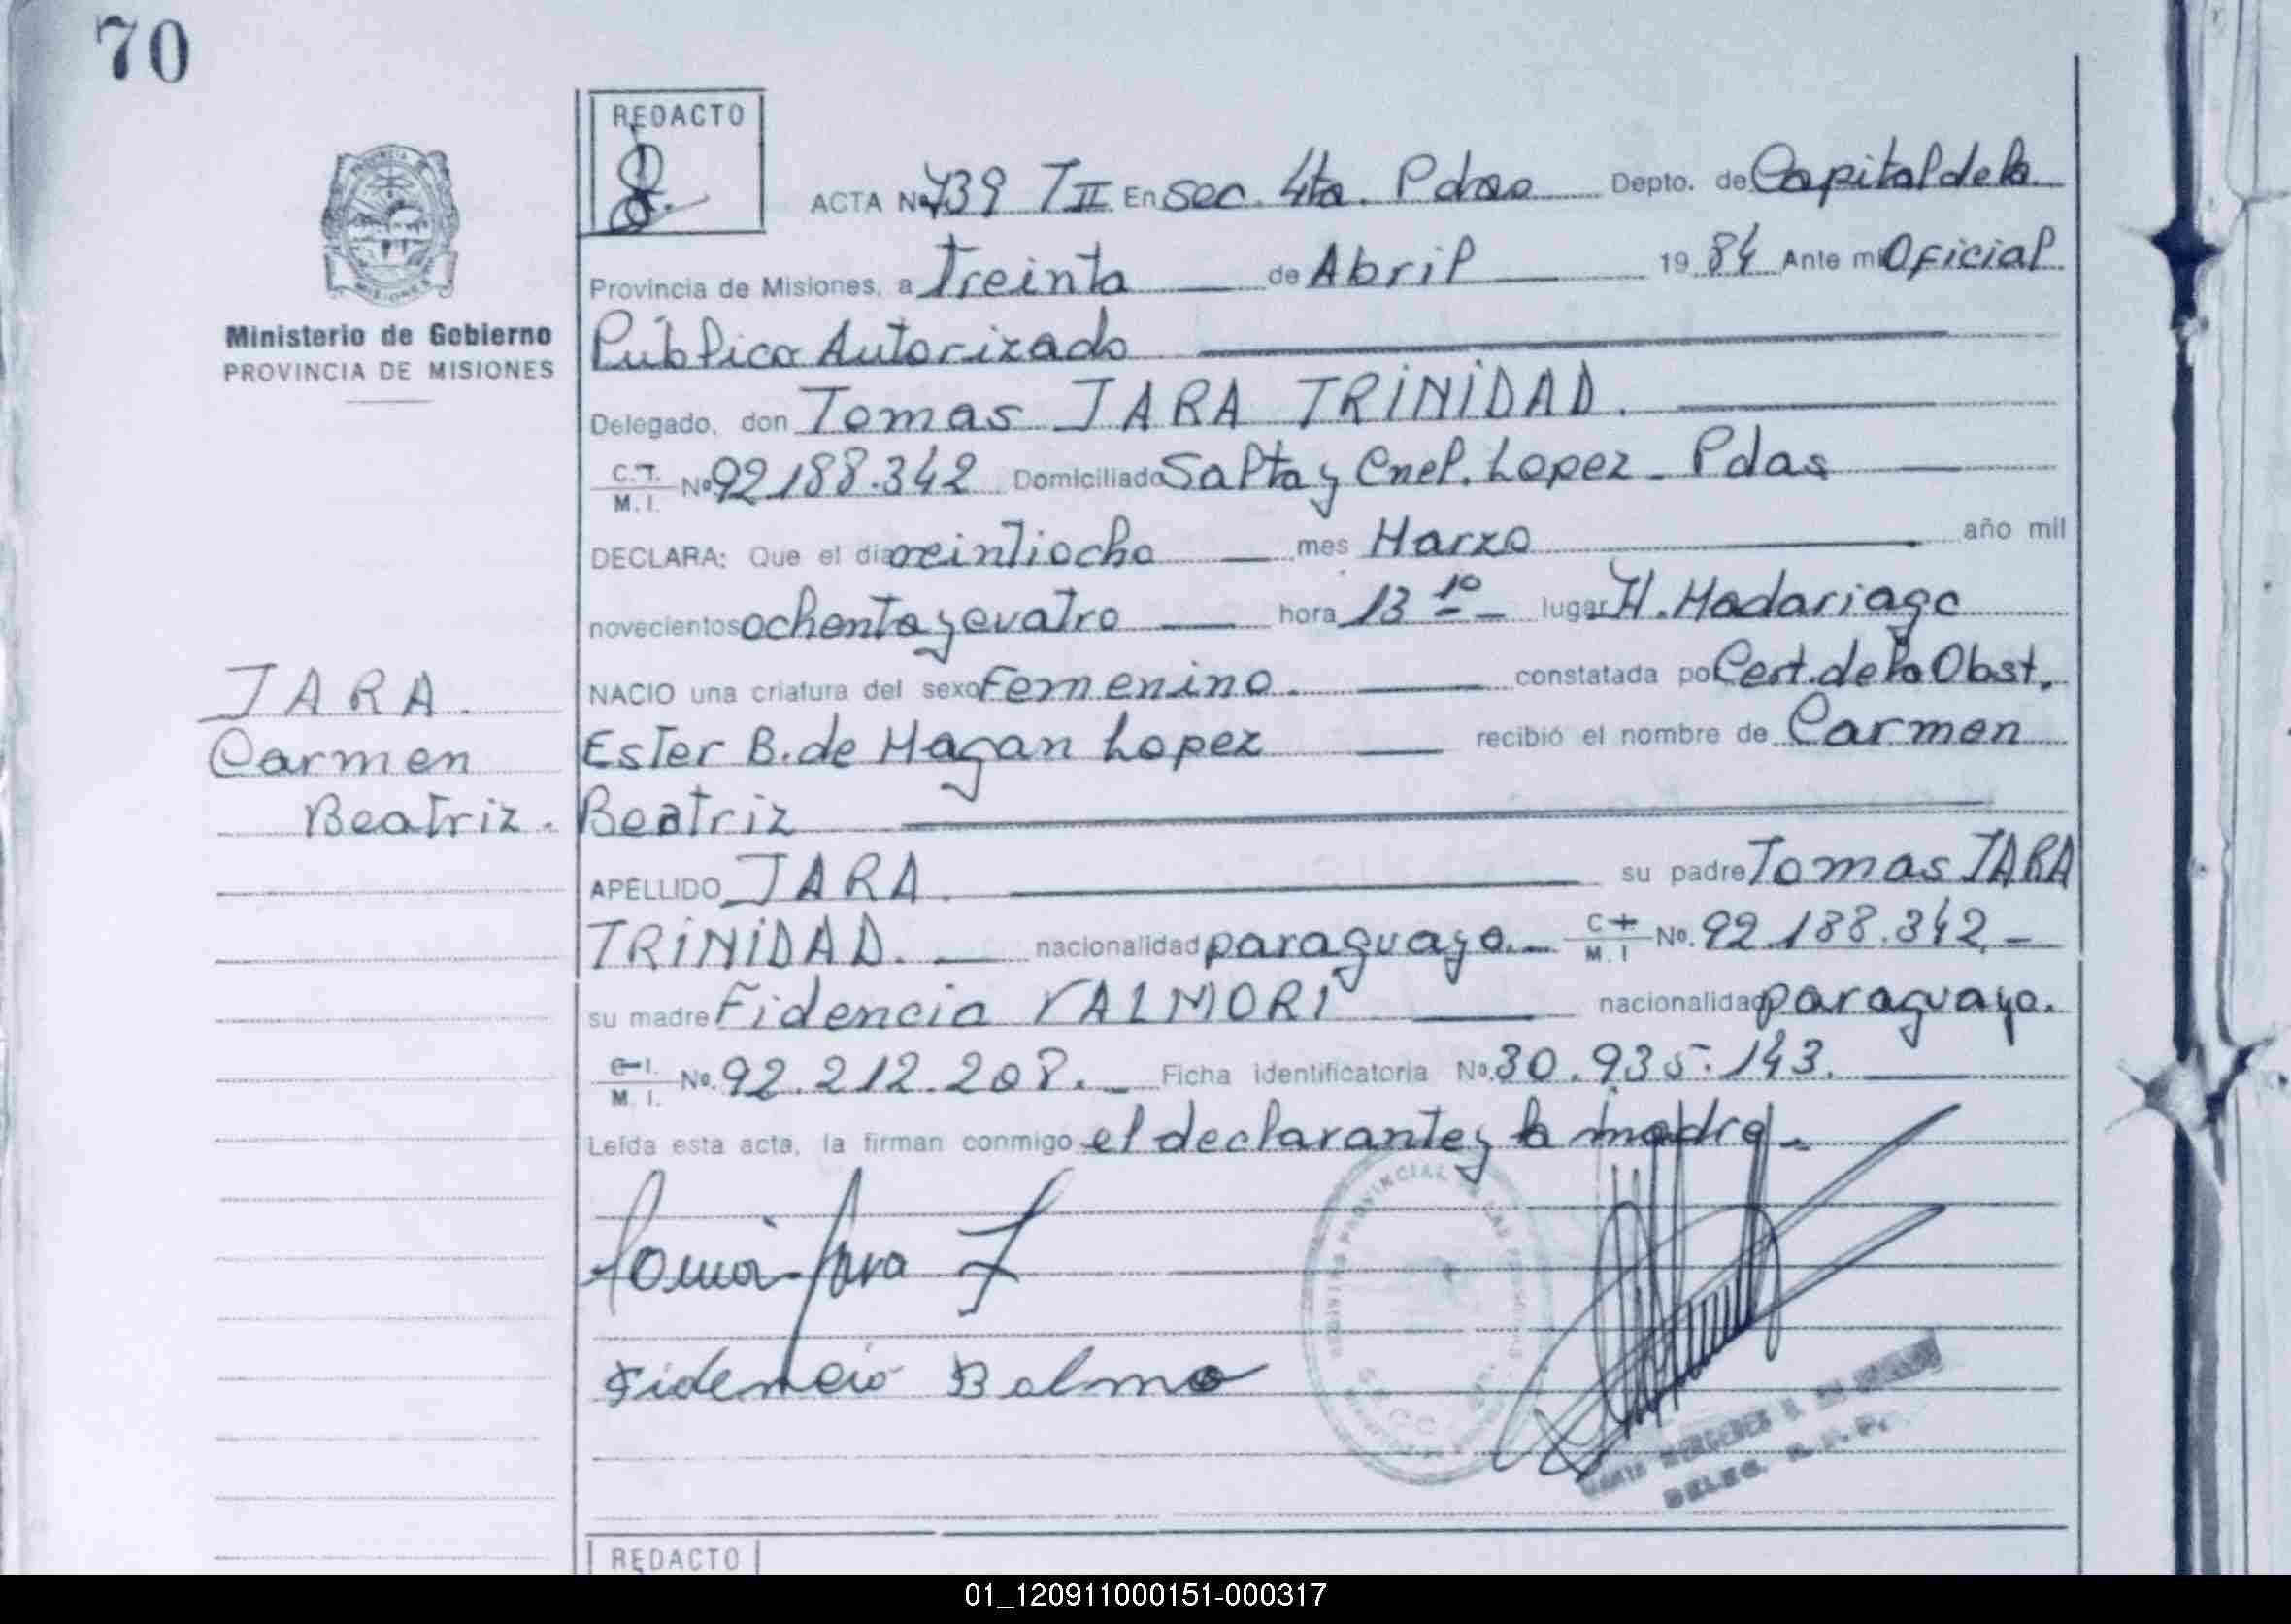 70
REDACTO
ACTA Nº 739 T II En Sec. 4ta. Pdas Depto. de Capital de la
Provincia de Misiones, a Treinta de Abril 19 84 Ante mi Oficial
Ministerio de Gobierno
PROVINCIA DE MISIONES
Público Autorizado
Delegado, don Tomas JARA TRINIDAD.
C.I. M.I. Nº 92.188.342 Domiciliado Salta y Cnel. Lopez - Pdas
DECLARA: Que el día veintiocho mes Marzo año mil
novecientos ochenta y cuatro hora 13 10 lugar H. Madariaga
NACIO una criatura del sexo Femenino. constatada po Cert. de la Obst.
JARA.
Carmen
Beatriz.
Ester B. de Magan Lopez recibió el nombre de Carmen
Beatriz
APELLIDO JARA. su padre Tomas JARA
TRINIDAD. nacionalidad paraguaya. C.I. M.I. Nº. 92.188.342.-
su madre Fidencia VALMORI nacionalidad paraguaya.
C.I. M.I. Nº. 92.212.208.- Ficha identificatoria Nº. 30.935.143.
Leída esta acta, la firman conmigo el declarante y la madre.-
PROVINCIAL DE LAS
Fidencia Balmo
DELEG. R. P. P.
REDACTO
01_120911000151-000317